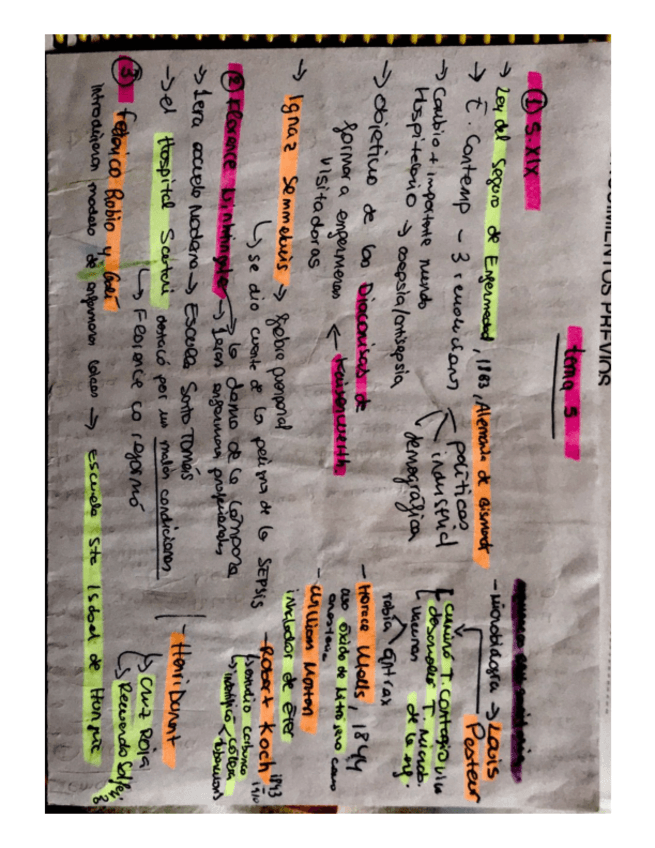 NOCIMIENTOS PREVIOS
tema 5
① S. XIX
→ Ley del Seguro de Enfermedad, 1883, Alemania de Bismark
→ E. Contemp - 3 revoluciones
políticas
industrial
demográfica
→ Cambio + importante mundo
Hospitalario → asepsia/antisepsia
→ objetivo de las Diaconisas de
Kaiserwerth
formar a enfermeras
visitadoras
→ Ignaz Semmelweis → fiebre puerperal
↳ se dio cuenta de la de la SEPSIS
② Florence
→ la dama de la lámpara
→ 1eras enfermeras profesionales
→ 1era escuela Moderna → Escuela Santo Tomás
→ el Hospital Scutari destacó por sus malas condiciones
↳ Florence lo reformó
③ Federico Rubio y Galí
Introdujeron modelo de enfermeras laicas → escuela Sta Isabel de Hungría
- Microbiología → Louis
Pasteur
T. Contagio viva
desarrollar T. microb.
de la enf.
vacunas
rabia ántrax
- Horace Wells, 1844
uso óxido de nitroso como
anestesia
- William Morton
inhalador de éter
- Robert Koch 1843
1910
carbunco
cólera
tuberculosis
- Henri Dunant
↳ Cruz Roja
↳ Recuerdo Solferi
no